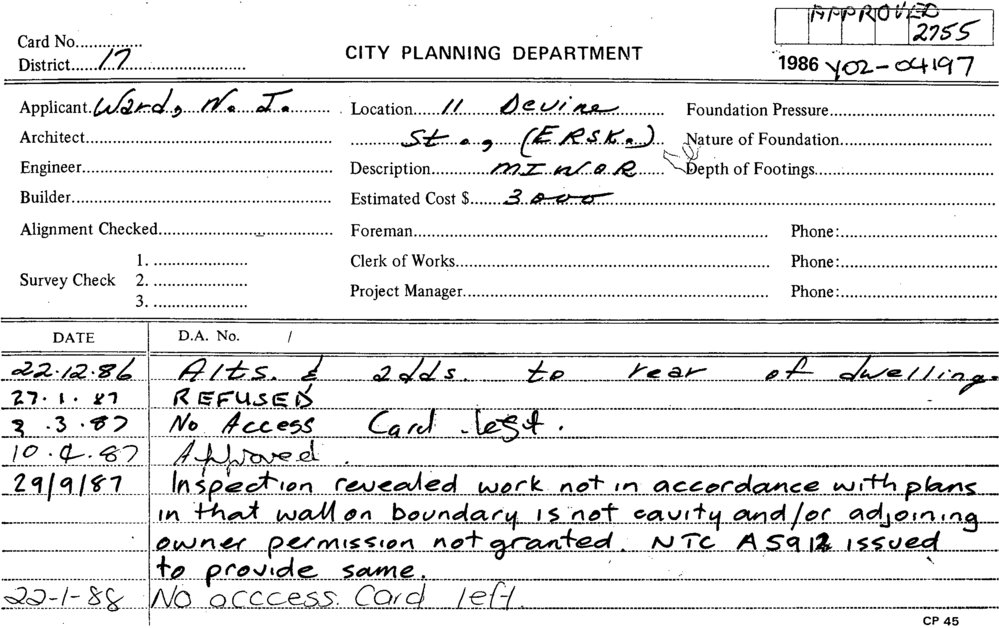 APPROVED
2755
Card No.
District 17
CITY PLANNING DEPARTMENT
1986 Y02-04197
Applicant Ward, N. I.
Location 11 Devine
Foundation Pressure
Architect
St., (ERSK.)
Nature of Foundation
Engineer
Description MINOR
Depth of Footings
Builder
Estimated Cost $ 3000
Alignment Checked
Foreman
Phone:
Survey Check
1.
2.
3.
Clerk of Works
Phone:
Project Manager
Phone:
DATE D.A. No. /
22.12.86 Alts. & adds. to rear of dwelling.
27.1.87 REFUSED
3.3.87 No Access Card left.
10.4.87 Approved.
29/9/87 Inspection revealed work not in accordance with plans
in that wall on boundary is not cavity and/or adjoining
owner permission not granted. NTC A5912 issued
to provide same.
22-1-88 No acccess. Card left.
CP 45